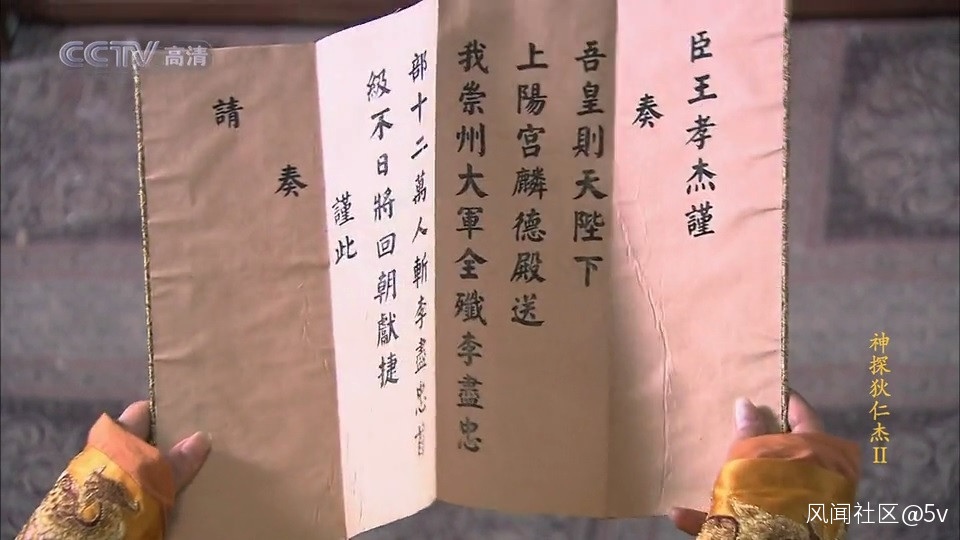 CCTV高清
臣王孝杰謹
奏
吾皇則天陛下
上陽宫麟德殿送
我崇州大軍全殲李盡忠
部十二萬人斬李盡忠首
級不日將回朝獻捷
謹此
奏
請
神探狄仁杰II
风闻社区@5v